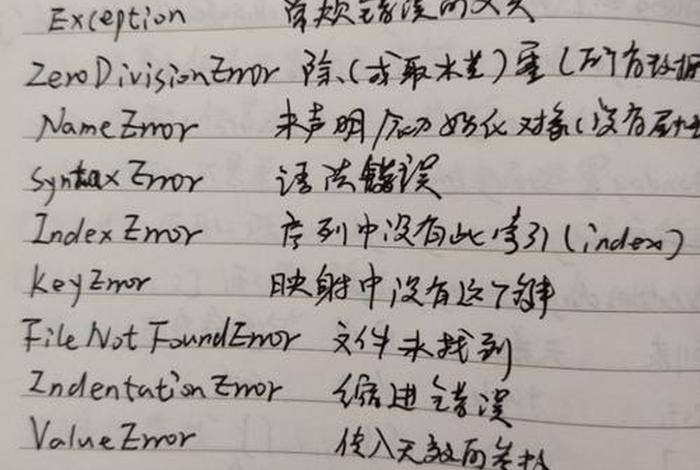 Exception 常规错误的父类
ZeroDivisionError 除(或取余)零(所有数据
NameError 未声明/初始化对象(没有属性
SyntaxError 语法错误
IndexError 序列中没有此索引(index)
KeyError 映射中没有这个键
FileNotFoundError 文件未找到
IndentationError 缩进错误
ValueError 传入无效的参数